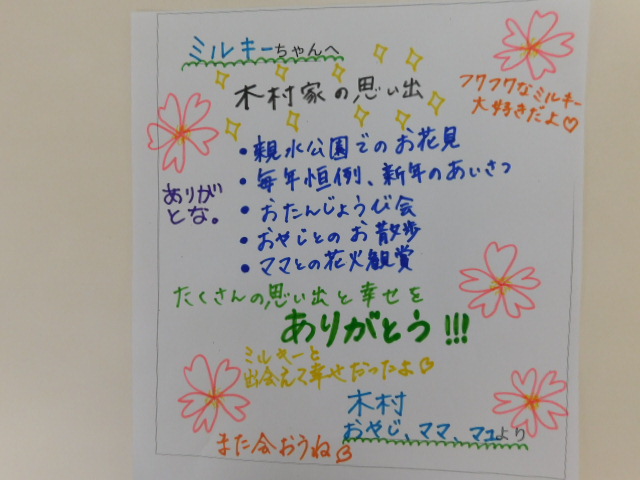 ミルキーちゃんへ
木村家の思い出
フワフワなミルキー
大好きだよ♡
・親水公園でのお花見
・毎年恒例、新年のあいさつ
・おたんじょうび会
・おやじとのお散歩
・ママとの花火観賞
ありが
とな。
たくさんの思い出と幸せを
ありがとう!!!
ミルキーと
出会えて幸せだったよ♡
木村
おやじ、ママ、マユより
また会おうね♡